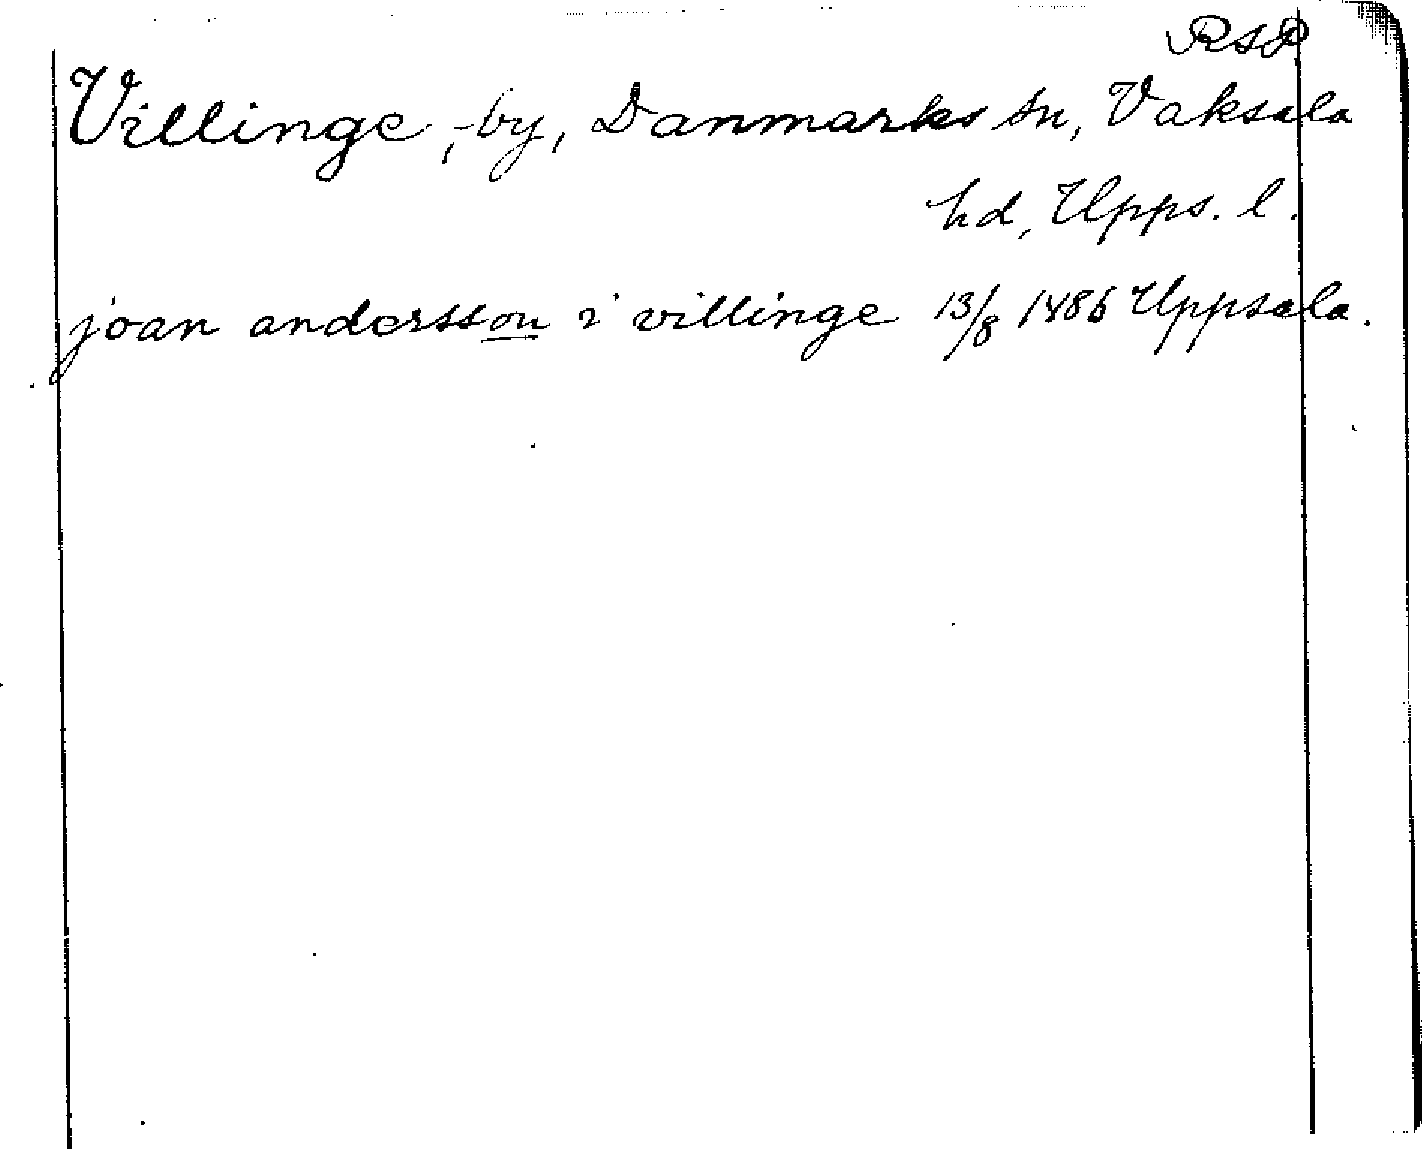 RSP
Villinge, by, Danmarks sn, Vaksala
hd, Upps. l.
joan andersson i villinge 13/8 1486 Uppsala.